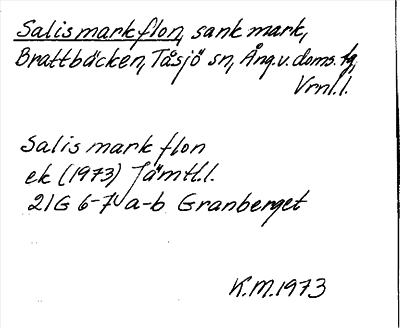 Salismarkflon, sank mark,
Brattbäcken, Tåsjö sn, Ång.v.doms.fg,
Vrnl.l.
Salismarkflon
ek (1973) Jämtl.l.
21G 6-7 a-b Granberget
K.M.1973